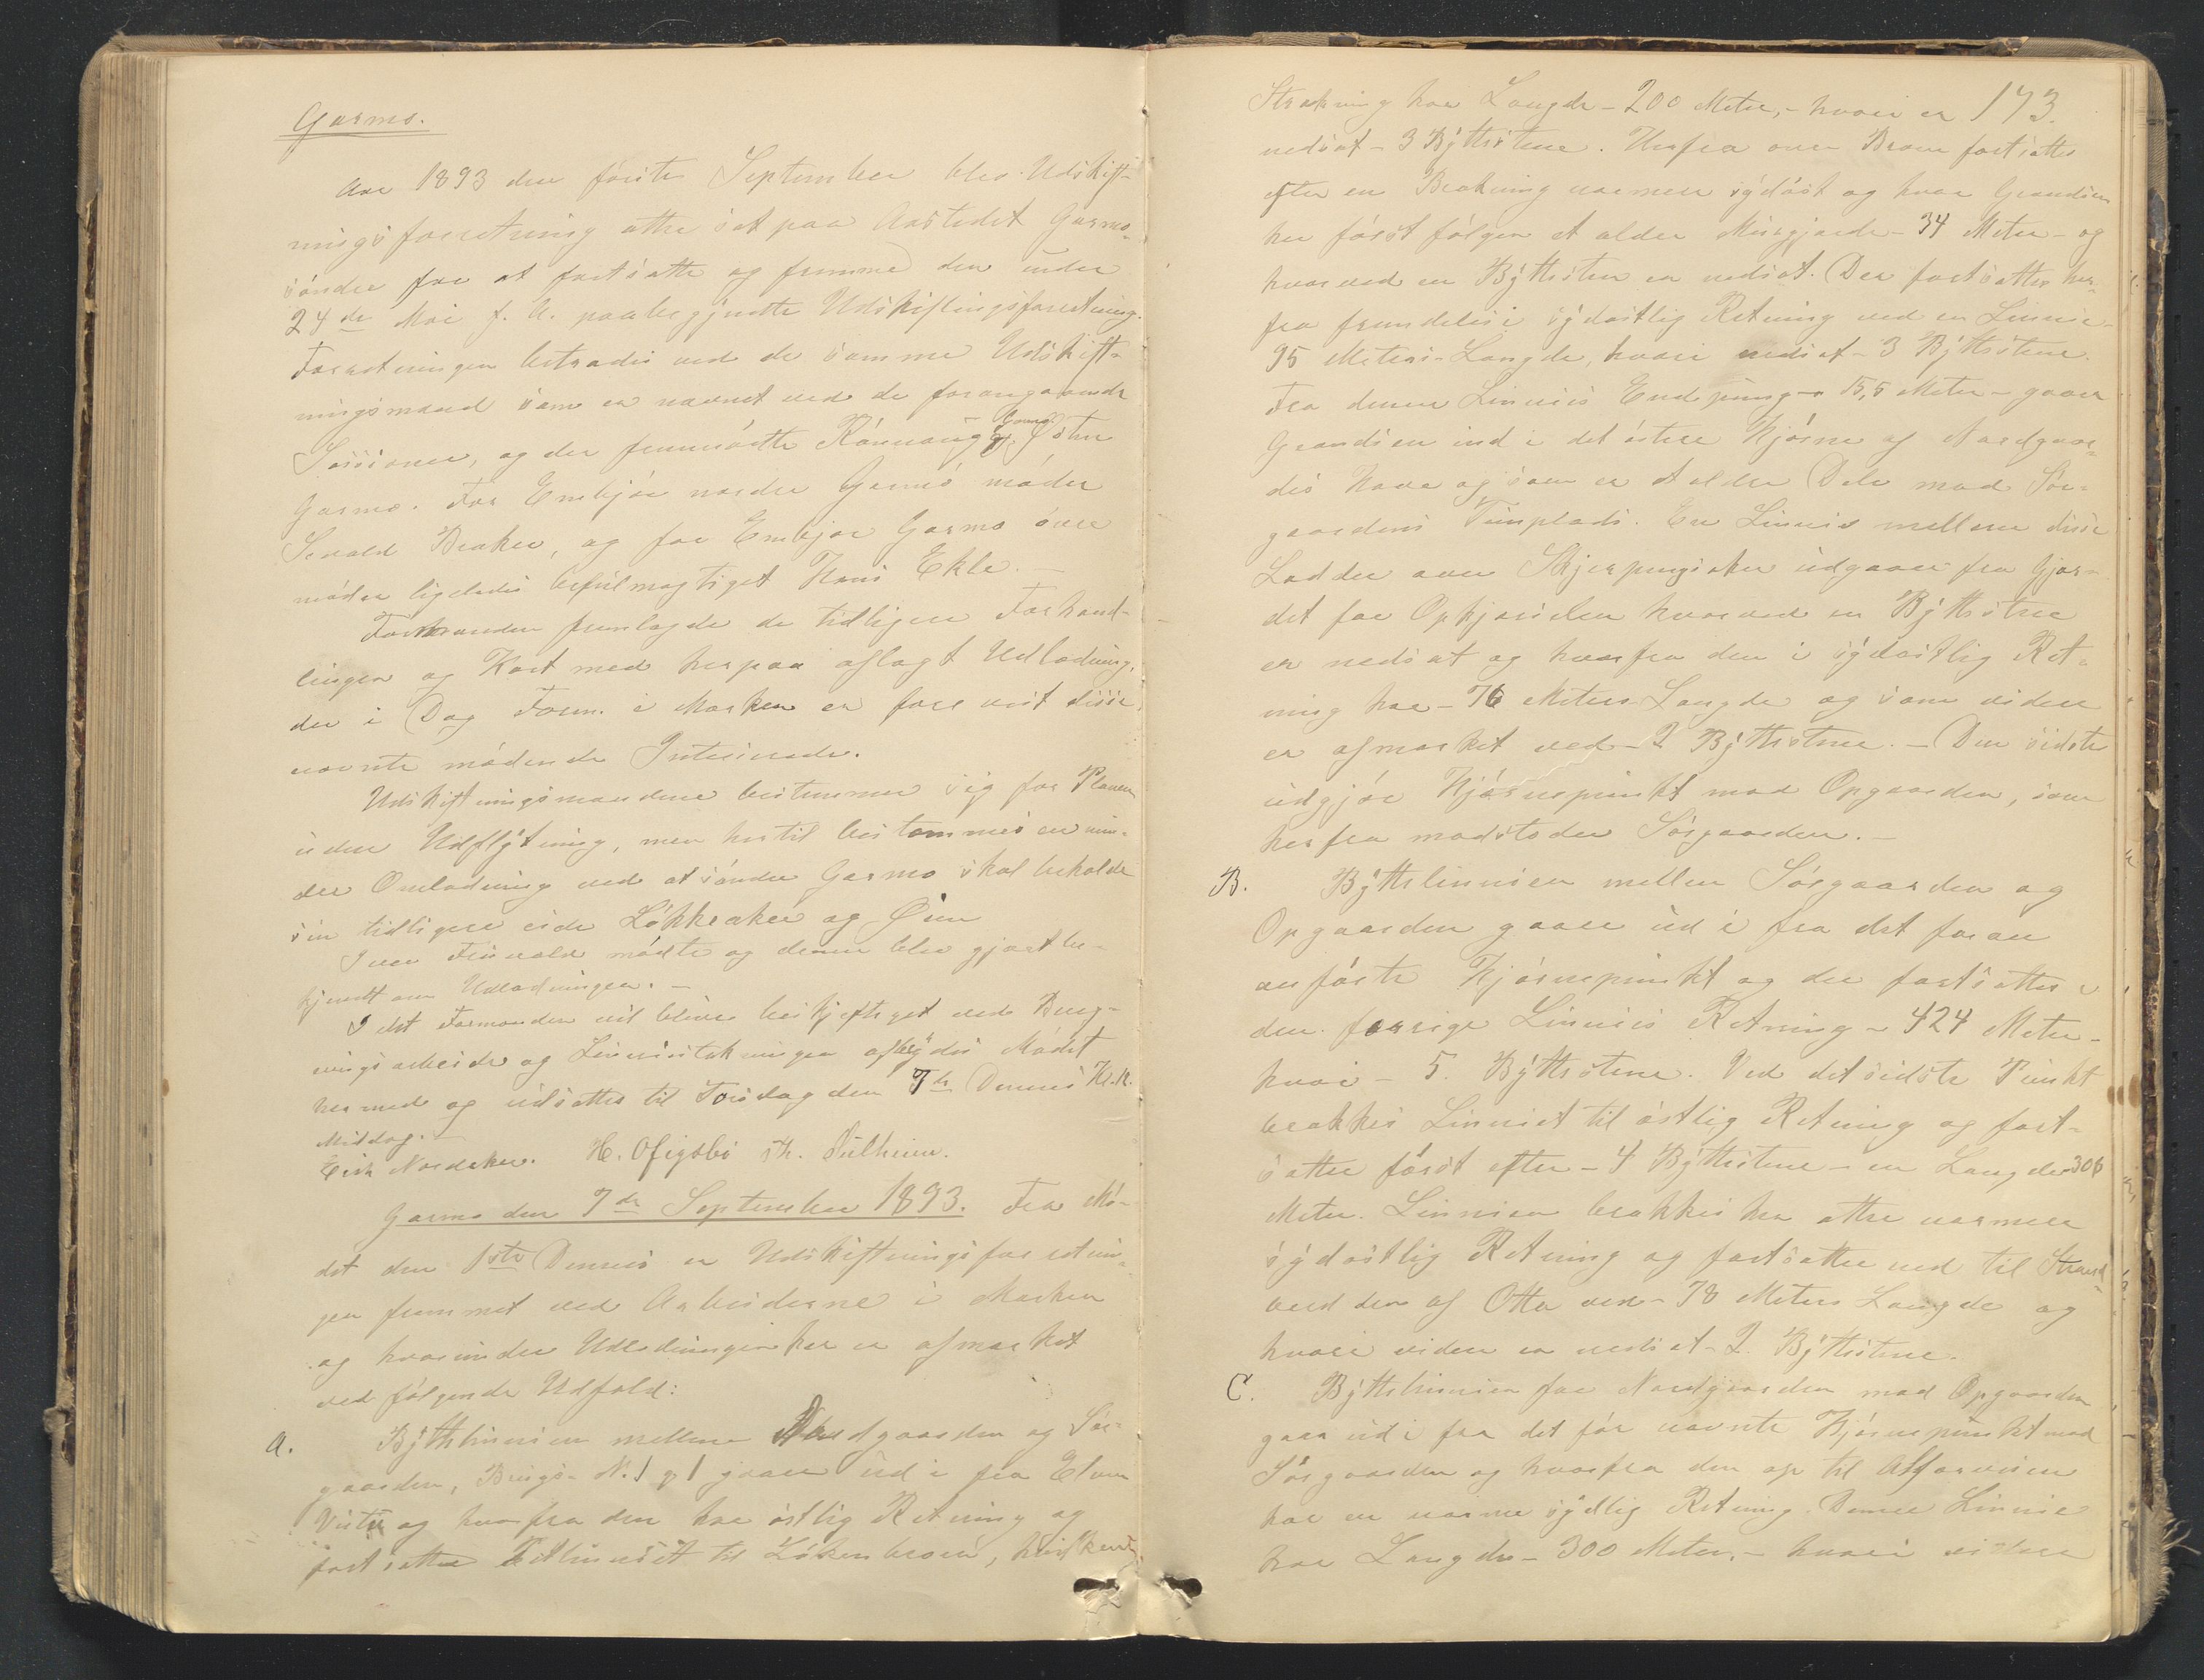 Garmo.
Aar 1893 den förste September blev Udskift-
ningsforretning atter sat paa Aastedet Garmo
söndre for at fortsatte og fremme den under
24de Mai f. A. paabegjyndte Udskiftingsforretning.
Forretningen betrades ved de samme Udskift-
ningsmænd som er navnet ved de foregaaende
Sessioner, og der fremmödte Rönnaug Garmo Östre
Garmo. For Embjör nordre Garmo möder
Sevald Braker, og for Embjør Garmo övre
möder ligeledes befulmagtiget Hans Ekle. —
Formanden fremlagde de tidligere Forhand-
linger og Kart med herpaa aflagt Udlodning,
der i Dag Form. i Marken er fore vist disse
navnte mödende Interiserede.
Udskiftningsmandene bestemmer sig for Planen
uden Udflytning, men hertil bestemmes en min-
dre Omlodning ved at söndre Garmo skal beholde
sin tidligere eide Lökkraker og Öien
Iver Tesivold mödte og denne blev gjort be-
kjendt om Udlodningen. —
I det Formanden vil blive beskjeftiget ved Bereg-
ningsarbeide og Liniestakningen afbrydes Mödet
hermed og udsattes til Torsdag den 7de Dennes Kl. 12.
Middag. —
Erik Nordaker. H. Ofigsbö Th. Sulheim.
Garmo den 7de September 1893. Fra Mö-
det den 1ste Dennes er Udskiftningsforretnin-
gen fremmet ved Arbeiderne i Marken
og hvorunder Udlodningen her er afmarket
ved fölgende Udfald:
A. Byttelinnien mellem Nordgaarden og Sör-
gaarden, Brugs-N. 1 og 1 gaaer ud i fra Elven
Vesti og hvorfra den har östlig Retning og
fortsatter Titlinnset til Löken broen, hvilken
Strakning har Langde - 200 Meter, - hvori er 173.
nedsat - 3 Byttestene. Herfra over Broen fortsattes
efter en Brakning narmere sydöst og hvor Grandsen
her först fölger et alder Muurgjarde - 34 Meter - og
hvorved en Byttesten er nedsat. Der fortsattes her-
fra fremdeles i sydöstlig Retning ved en Linnie
95 Meters Langde, hvori nedsat - 3 Byttestene.
Fra denne Linnies Endpung - 15,5 Meter - gaaer
Grandsen ind i det östre Hjörne af Nordgaar-
des Have og som er et aldre Dele mod Sör-
gaardens Tunplads. En Linnie mellem disse
Lodder over Skjerpingsaker udgaaer fra Gjær-
det for Opkjörselen hvorved en Byttestene
er nedsat og hvorfra den i sydöstlig Ret-
ning har - 76 Meters Langde og som videre
er afmarket ved - 2 Byttestene. - Den sidste
udgjör Hjörnepunkt mod Opgaarden, som
herfra modstöder Sörgaarden. —
B. Byttelinnien mellem Sörgaarden og
Opgaarden gaaer ud i fra det foran
anförte Hjörnepunkt og der fortsattes i
den forrige Linnies Retning - 424 Meter -
hvori - 5. Byttestene. Ved det sidste Punkt
brakkes Linniet til östlig Retning og fort-
satter först efter - 4 Byttestene - en Langde 306
Meter. Linnien brakkes her atter narmere
sydöstlig Retning og fortsatter ned til Strand-
bredden af Otta ved - 78 Meters Langde og
hvori videre er nedsat - 2 Byttestene.
C. Byttelinnien for Nordgaarden mod Opgaarden
gaar ud i fra det för navnte Hjörnepunkt mod
Sörgaarden og hvorfra den op til Alfarveien
har en narme sydlig Retning. Denne Linnie
har Langde - 300 Meter, - hvori videre